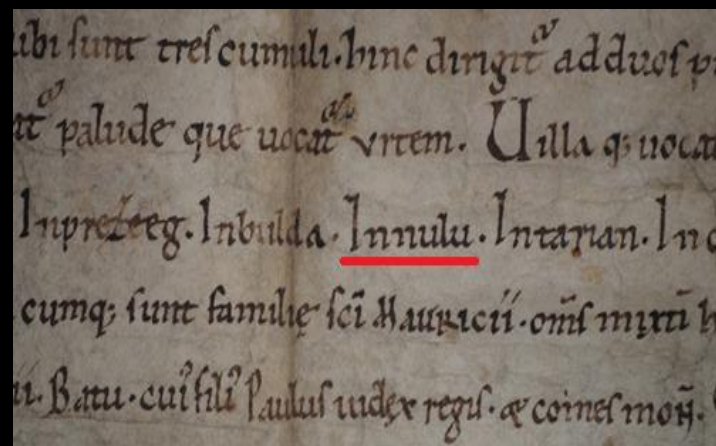 ubi sunt tres cumuli. hinc dirigit᷑ ad duos p
it᷑ palude que uocat᷑ vrtem. Uilla q; uocat
Inprezeeg. Inbulda. Innulu. Intarian. In
cumq; sunt familię sc̄i Mauricii. om̄s mixti h
ii. Batu. cui᷒ fili᷒ Paulus iudex regis. æ comes moñ.